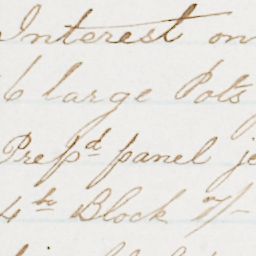 Interest on
6 large Pots
Prepd panel je
4to Block 7/-